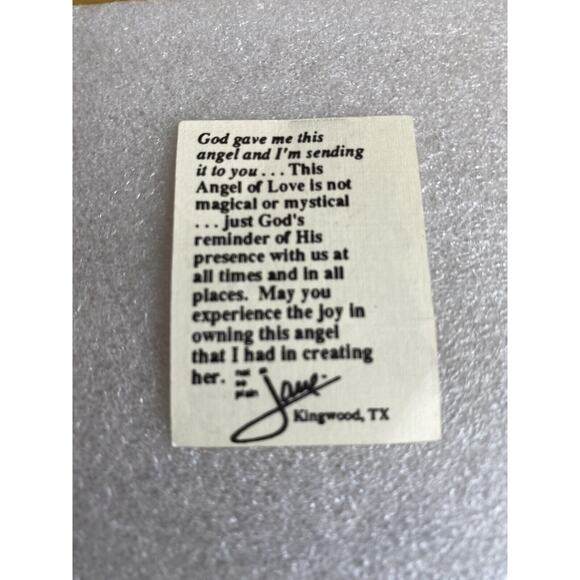 God gave me this
angel and I'm sending
it to you . . . This
Angel of Love is not
magical or mystical
. . . just God's
reminder of His
presence with us at
all times and in all
places. May you
experience the joy in
owning this angel
that I had in creating
her. not a
so
plain
Jane
Kingwood, TX